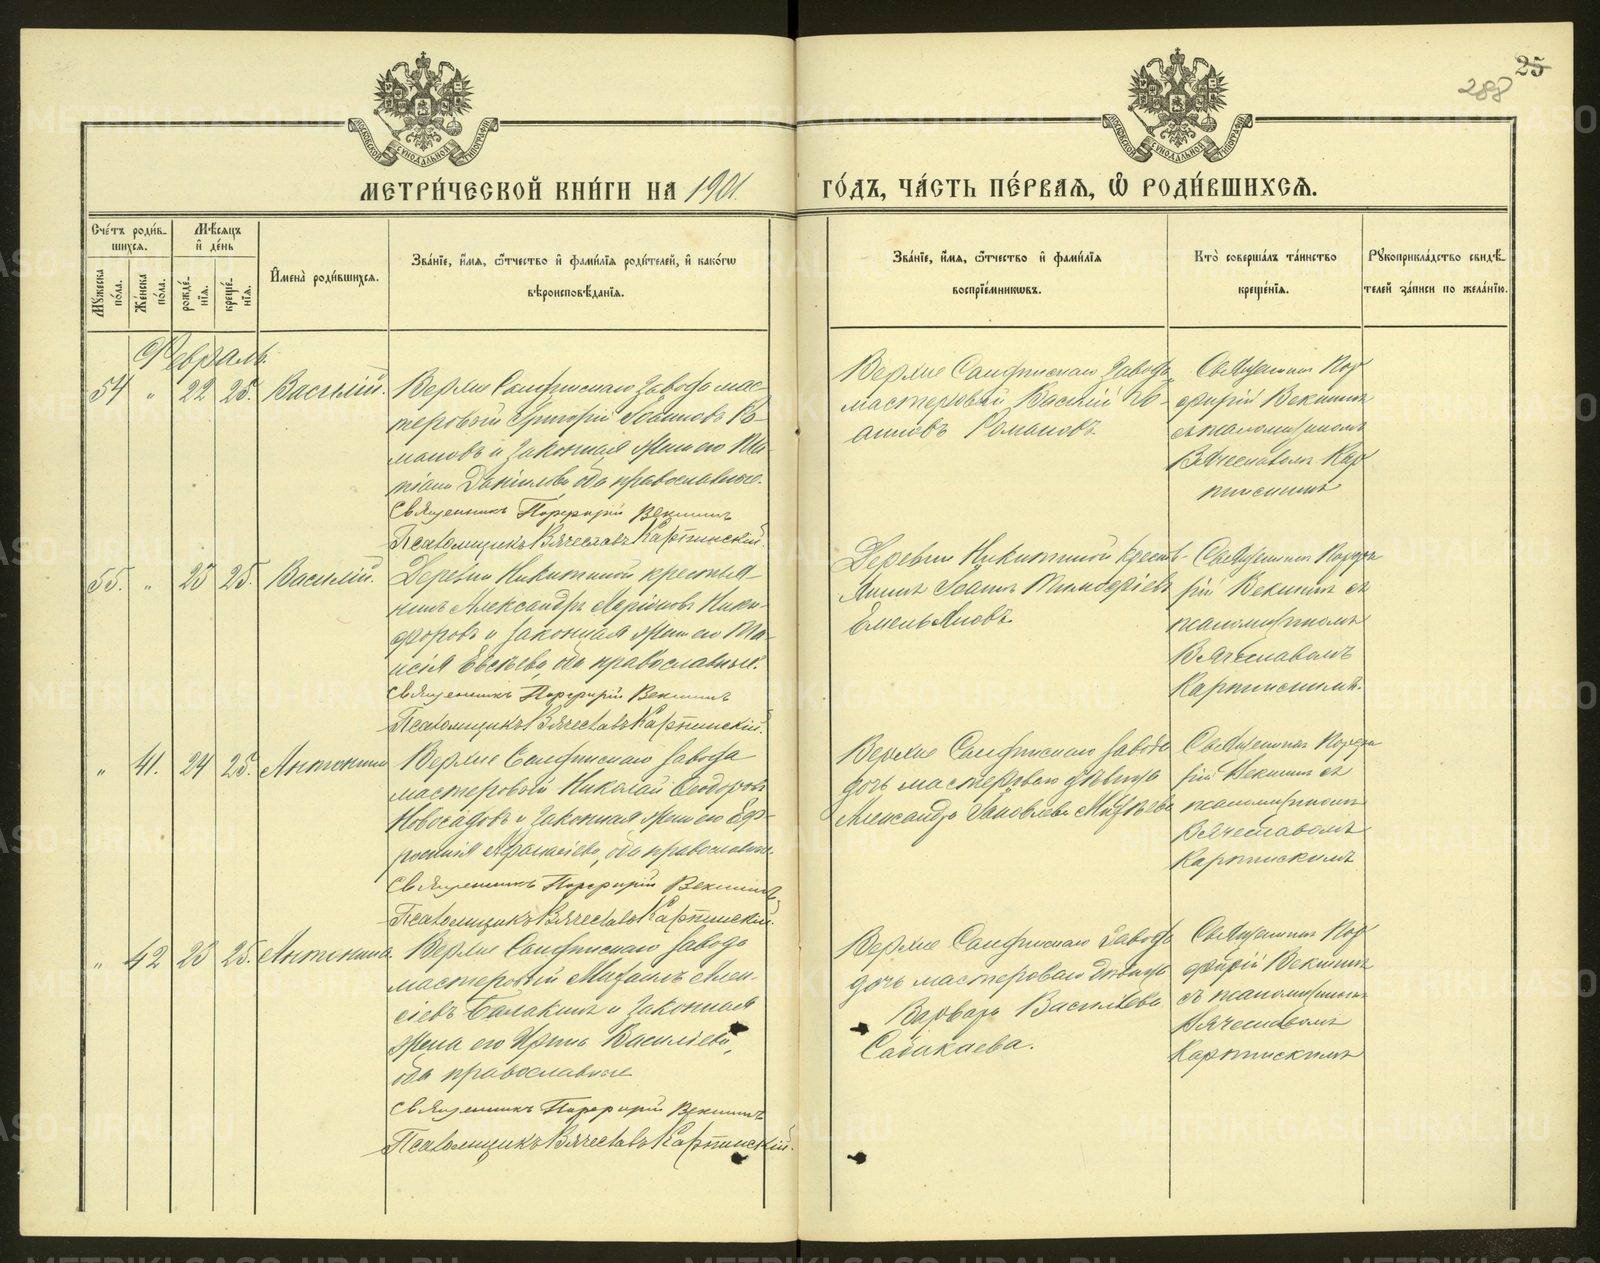 25
288
МЕТРИ́ЧЕСКОЙ КНИ́ГИ НА 1901
ГО́ДЪ, ЧА́СТЬ ПЕ́РВАѦ, Ѡ҆ РОДИ́ВШИХСѦ.
Сче́тъ роди́в-
шихсѧ.
Мꙋжеска по́ла.
Же́нска по́ла.
Мѣ́сѧцъ
и҆ де́нь
рожде́-
нїѧ.
креще́-
нїѧ.
И҆мена̀ роди́вшихсѧ.
Зва́нїе, и҆́мѧ, ѻ҆́тчество и҆ фами́лїѧ роди́телей, и҆ како́гѡ
вѣроисповѣ́данїѧ.
Зва́нїе, и҆́мѧ, ѻ҆́тчество и҆ фами́лїѧ
воспрїе́мниковъ.
Кто̀ соверша́лъ та́инство
креще́нїѧ.
Рꙋкоприкла́дство свидѣ́-
телей за́писи по жела́нїю.
Февраль
54 " 22 25. Василій.
Верхне Саифтскаго завода мас-
теровой Григорій Іоанновъ Ро-
мановъ и законная жена его Та-
тіана Даніилова, оба православные.
Священникъ Порфирій Векшинъ
Псаломщикъ Вячеславъ Карпинскій.
Верхне Саифтскаго завода
мастеровой Василій Іо-
анновъ Романовъ.
Священникъ Пор
фирій Векшинъ
съ псаломщикомъ
Вячеславомъ Кар
пинскимъ
55. " 23 25. Василій.
Деревни Никитиной крестья-
нинъ Александръ Ларіоновъ Ники-
форовъ и законная жена его Та-
исія Евсѣева, оба православные.
Священникъ Порфирій Векшинъ
Псаломщикъ Вячеславъ Карпинскій.
Деревни Никитиной кресть-
янинъ Іоаннъ Тимофеіевъ
Емельяновъ
Священникъ Порфи
рій Векшинъ съ
псаломщикомъ
Вячеславомъ
Карпинскимъ.
" 41. 24 25. Антонина
Верхне Саифтскаго завода
мастеровой Николай Ѳеодоровъ
Новосадовъ и законная жена его Еф-
росинія Аѳанасіева, оба православные.
Священникъ Порфирій Векшинъ
Псаломщикъ Вячеславъ Карпинскій.
Верхне Саифтскаго завода
дочь мастероваго дѣвица
Александра Іаковлева
Священникъ Порфи
рій Векшинъ съ
псаломщикомъ
Вячеславомъ
Карпинскимъ
" 42 23 25. Антонина
Верхне Саифтскаго завода
мастеровый Михаилъ Алек-
сіевъ Балакинъ и законная
жена его Ирина Василіева,
оба православные
Священникъ Порфирій Векшинъ
Псаломщикъ Вячеславъ Карпинскій.
Верхне Саифтскаго завода
дочь мастероваго дѣвица
Варвара Василіева
Сабакаева.
Священникъ Пор
фирій Векшинъ
съ псаломщикомъ
Вячеславомъ
Карпинскимъ